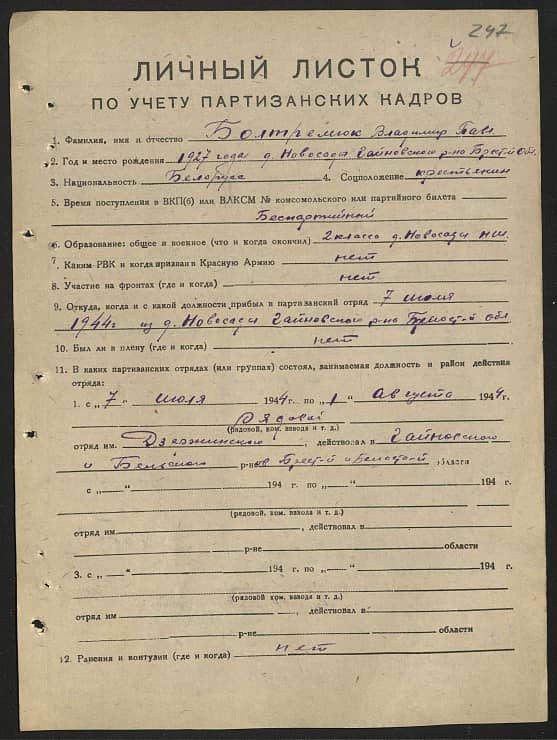 247
277
ЛИЧНЫЙ ЛИСТОК
ПО УЧЕТУ ПАРТИЗАНСКИХ КАДРОВ
1. Фамилия, имя и отчество Болтремюк Владимир Пав.
2. Год и место рождения 1927 года д. Новосады Гайновского р-на Брест. Обл.
3. Национальность Белорусс 4. Соцположение крестьянин
5. Время поступления в ВКП(б) или ВЛКСМ № комсомольского или партийного билета
Беспартийный
6. Образование: общее и военное (что и когда окончил) 2 класса д. Новосады НШ.
7. Каким РВК и когда призван в Красную Армию нет
8. Участие на фронтах (где и когда) нет
9. Откуда, когда и с какой должности прибыл в партизанский отряд 7 июля
1944г из д. Новосады Гайновского р-на Обл
10. Был ли в плену (где и когда) нет
11. В каких партизанских отрядах (или группах) состоял, занимаемая должность и район действия
отряда:
1. с „7" июля 1944 г. по „1" августа 1944 г.
Рядовой
(рядовой, ком. взвода и т. д.)
отряд им. Дзержинского, действовал в Гайновского
и Бельского р-нов Брест-й и Белост-й области
с „ — " 194 г. по „ — " 194 г.
(рядовой, ком. взвода и т. д.)
отряд им. , действовал в
р-не области
3. с „ — " 194 г. по „ — " 194 г.
(рядовой, ком. взвода и т. д.)
отряд им. , действовал в
р-не области
12. Ранения и контузии (где и когда) нет